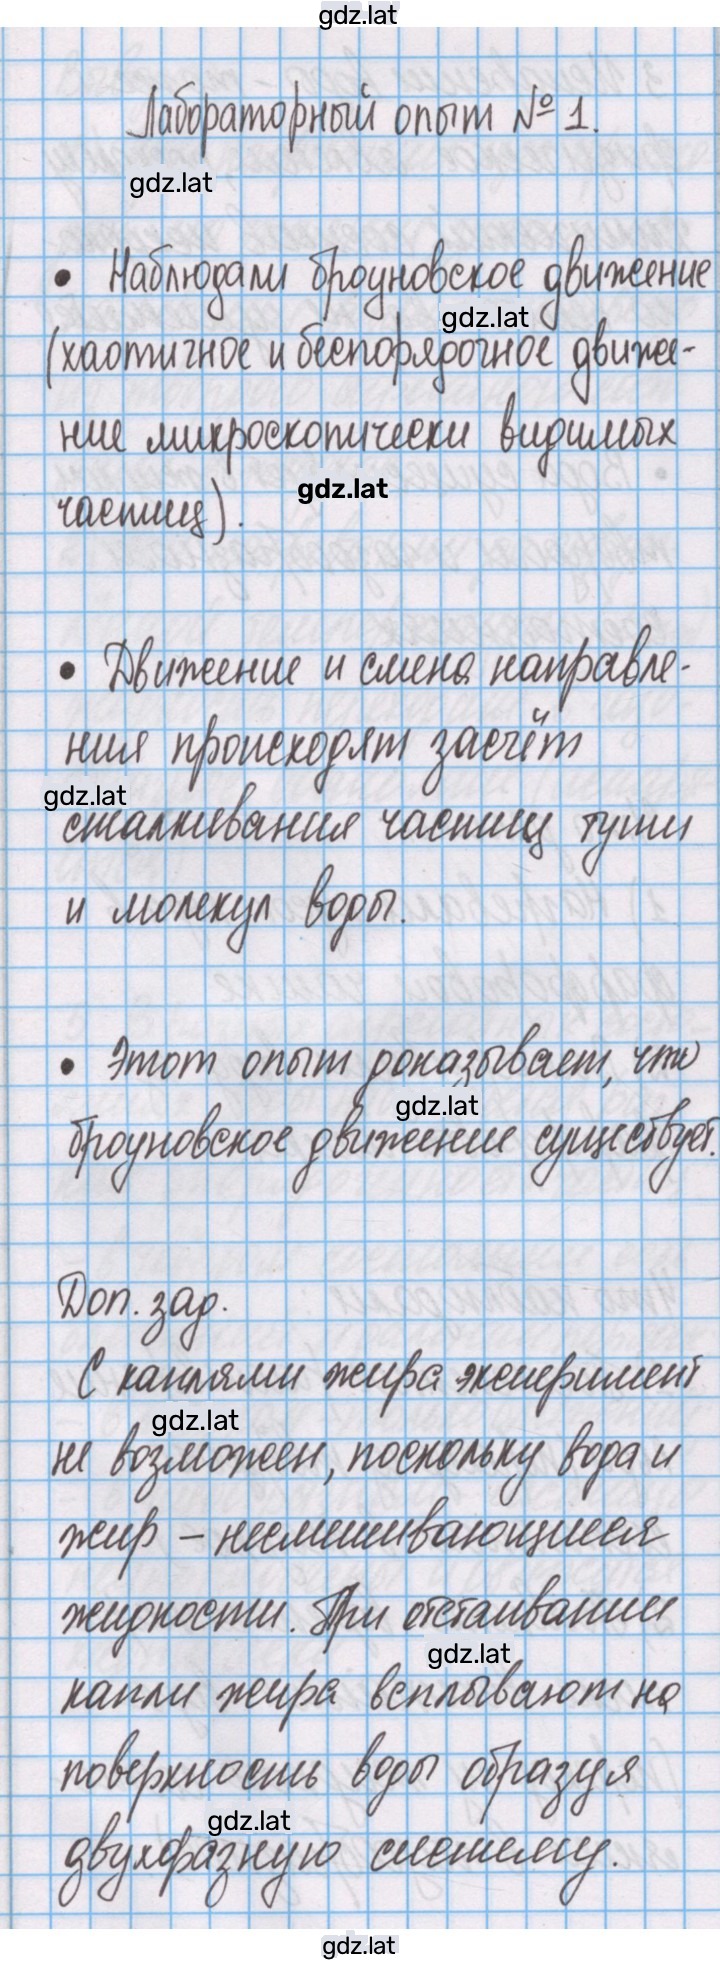 gdz.lat
Лабораторный опыт № 1.
gdz.lat
• Наблюдали броуновское движение
gdz.lat
(хаотичное и беспорядочное движе-
ние микроскопически видимых
gdz.lat
частиц).
• Движение и смена направле-
ния происходят засчёт
gdz.lat
сталкивания частиц туши
и молекул воды.
• Этот опыт доказывает, что
gdz.lat
броуновское движение существует.
Доп. зад.
С каплями жира эксперимент
gdz.lat
не возможен, поскольку вода и
жир – несмешивающиеся
жидкости. При отстаивании
gdz.lat
капли жира всплывают на
поверхность воды образуя
gdz.lat
двухфазную систему.
gdz.lat